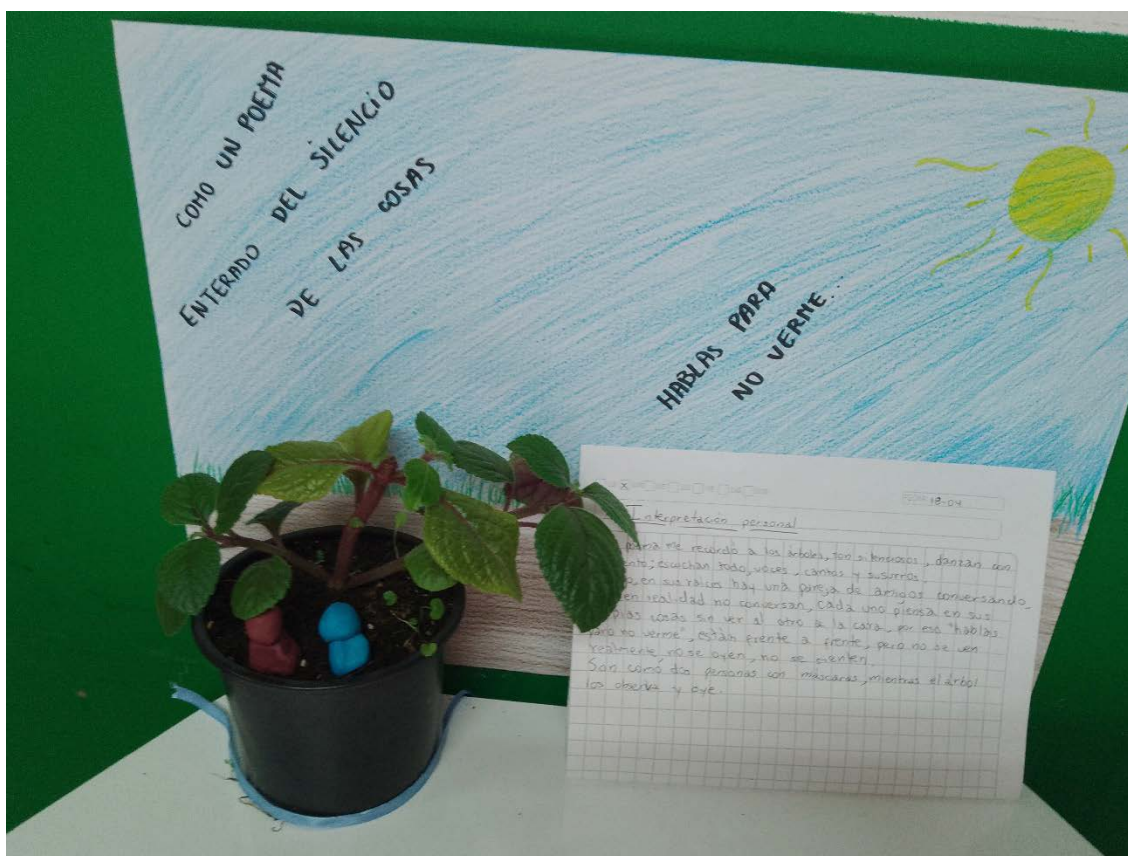 COMO UN POEMA
ENTERADO DEL SILENCIO
DE LAS COSAS
HABLAS PARA
NO VERME...
18-04
Interpretación personal
me recordó a los árboles, son silenciosos, danzan con
escuchan todo, voces, cantos y susurros.
en sus raíces hay una pareja de amigos conversando,
en realidad no conversan, cada uno piensa en sus
cosas sin ver al otro a la cara, por eso "hablas
para no verme", están frente a frente, pero no se ven
realmente, no se oyen, no se sienten.
Son como dos personas con máscaras, mientras el árbol
los observa y oye.